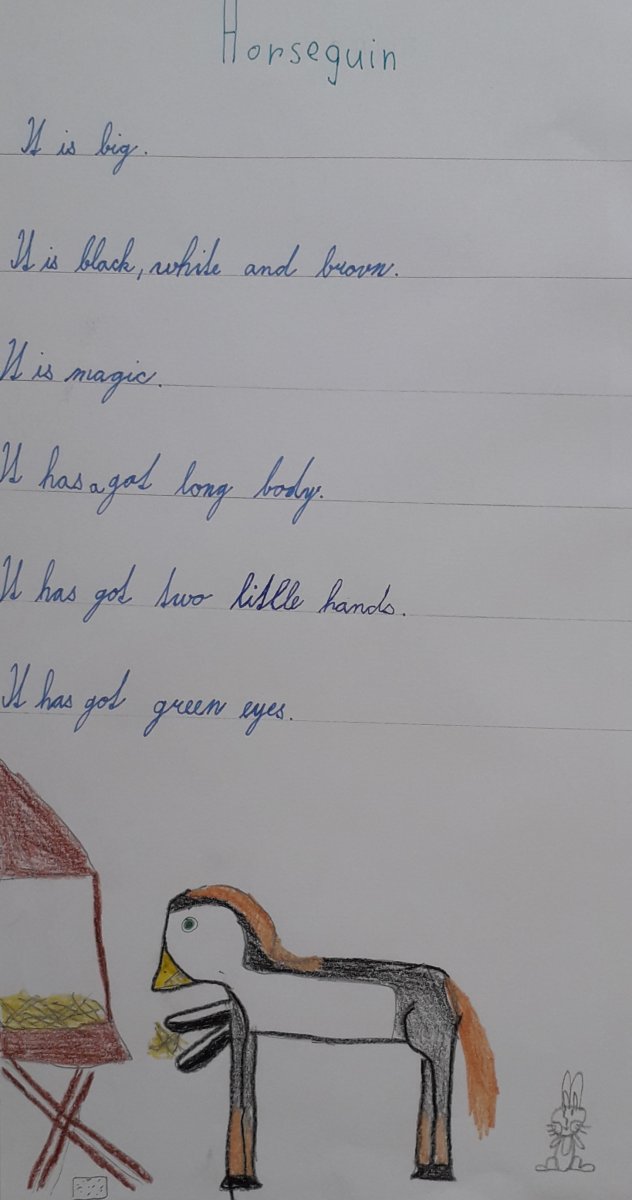 Horseguin
It is big.
It is black, white and brovn.
It is magic.
It has a got long body.
It has got two little hands.
It has got green eyes.